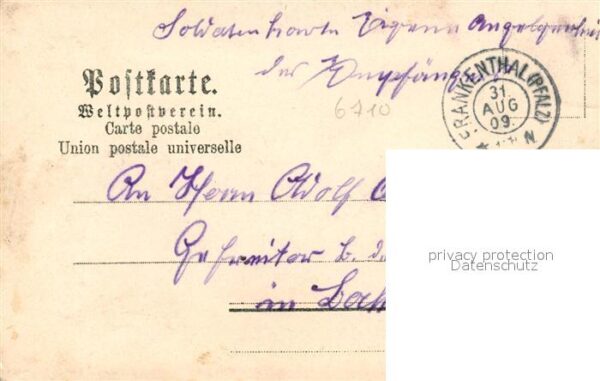 Soldatenkarte Eigene Angelegenheit
des Empfängers
Postkarte.
Weltpostverein.
Carte postale
Union postale universelle
6710
FRANKENTHAL (PFALZ)
31.
AUG
09.
N
An Herrn Adolf
Gefreiter b. d.
in
privacy protection
Datenschutz